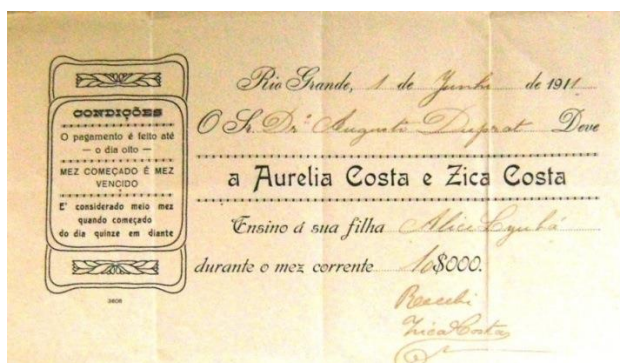 CONDIÇÕES
O pagamento é feito até
— o dia oito —
MEZ COMEÇADO É MEZ
VENCIDO
E' considerado meio mez
quando começado
do dia quinze em diante
2608
Rio Grande, 1 de Junho de 1911
O Sr. Dr. Augusto Duprat Deve
a Aurelia Costa e Zica Costa
Ensino á sua filha Alice
durante o mez corrente 10$000.
Recebi
Zica Costa